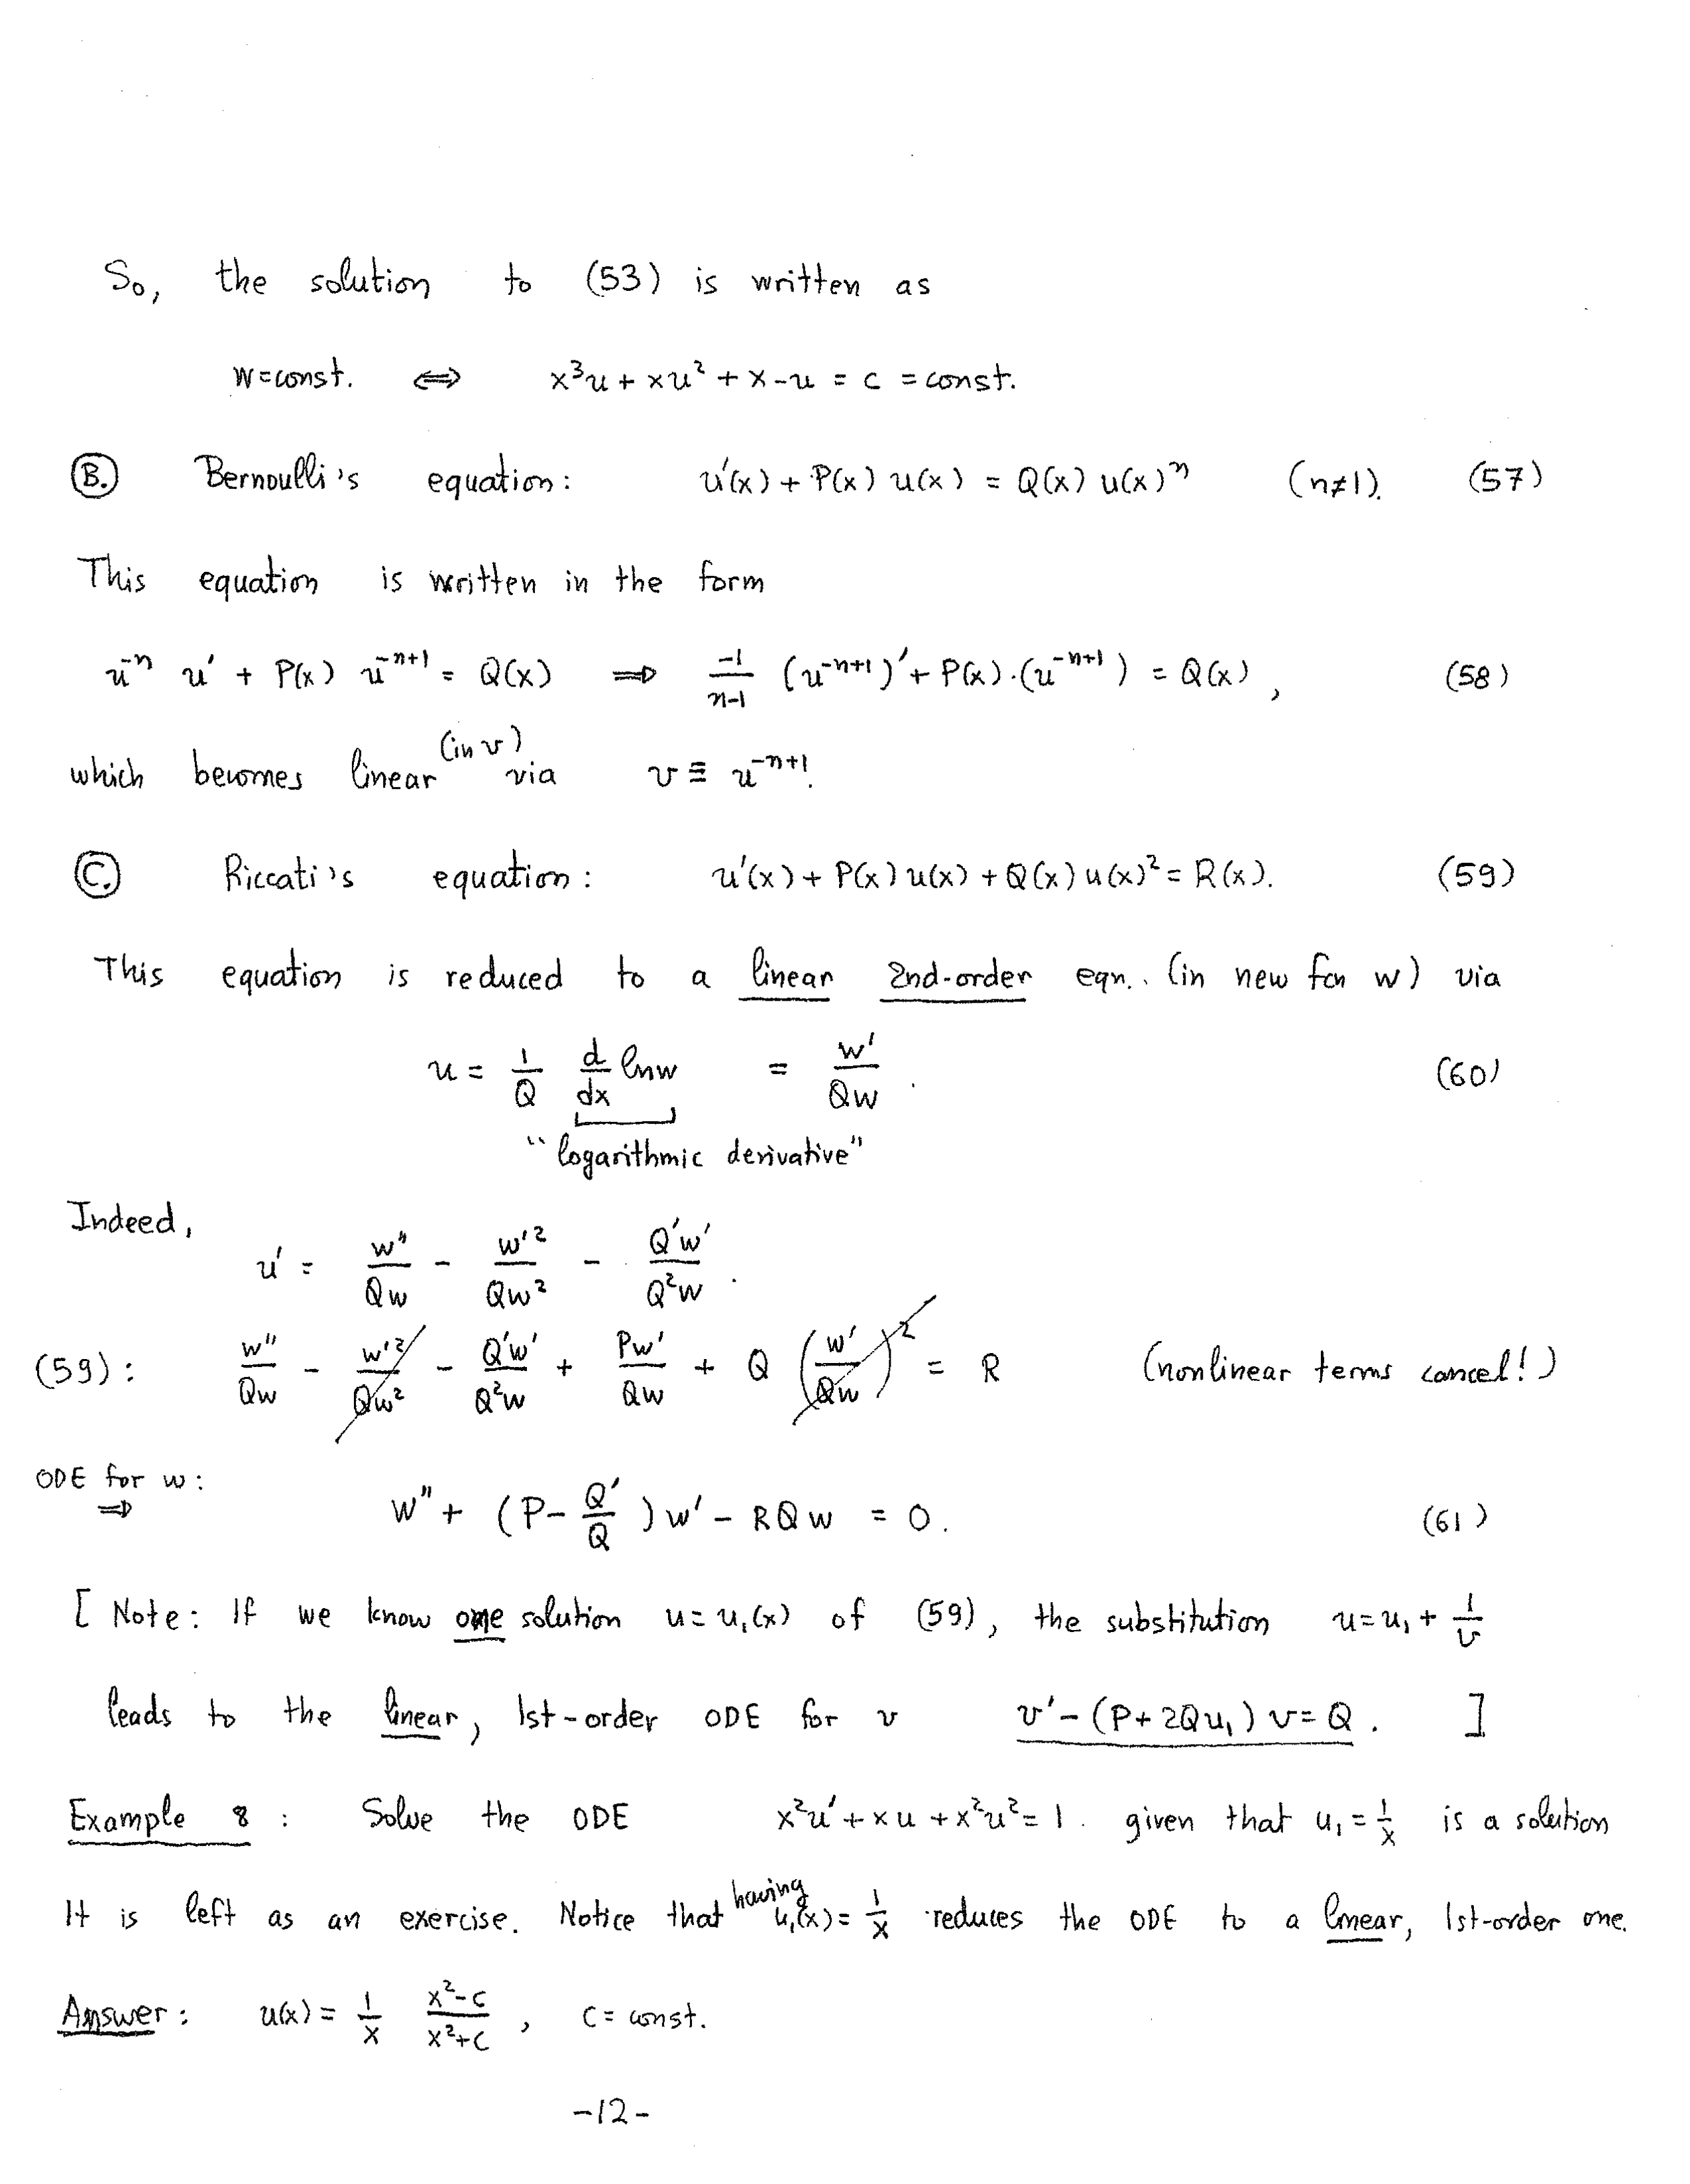 So, the solution to (53) is written as
w=const. ⇔ x³u + xu² + x-u = c = const.
(B.) Bernoulli's equation: u'(x) + P(x) u(x) = Q(x) u(x)ⁿ (n≠1). (57)
This equation is written in the form
u⁻ⁿ u' + P(x) u⁻ⁿ⁺¹ = Q(x) ⇒ -1/(n-1) (u⁻ⁿ⁺¹)' + P(x)·(u⁻ⁿ⁺¹) = Q(x), (58)
which becomes linear (in v) via v ≡ u⁻ⁿ⁺¹!
(C.) Riccati's equation: u'(x) + P(x) u(x) + Q(x) u(x)² = R(x). (59)
This equation is reduced to a linear 2nd-order eqn. (in new fcn w) via
u = 1/Q d/dx lnw = w'/(Qw). (60)
"logarithmic derivative"
Indeed,
u' = w''/(Qw) - w'²/(Qw²) - Q'w'/(Q²w).
(59): w''/(Qw) - w'²/(Qw²) - Q'w'/(Q²w) + Pw'/(Qw) + Q (w'/(Qw))² = R (nonlinear terms cancel!)
ODE for w:
⇒ w'' + (P - Q'/Q) w' - RQw = 0. (61)
[Note: If we know one solution u=u₁(x) of (59), the substitution u=u₁+1/v
leads to the linear, 1st-order ODE for v v' - (P+2Qu₁) v = Q. ]
Example 8: Solve the ODE x²u' + xu + x²u² = 1. given that u₁ = 1/x is a solution
It is left as an exercise. Notice that having u₁(x) = 1/x reduces the ODE to a linear, 1st-order one.
Answer: u(x) = 1/x (x²-c)/(x²+c), c = const.
-12-